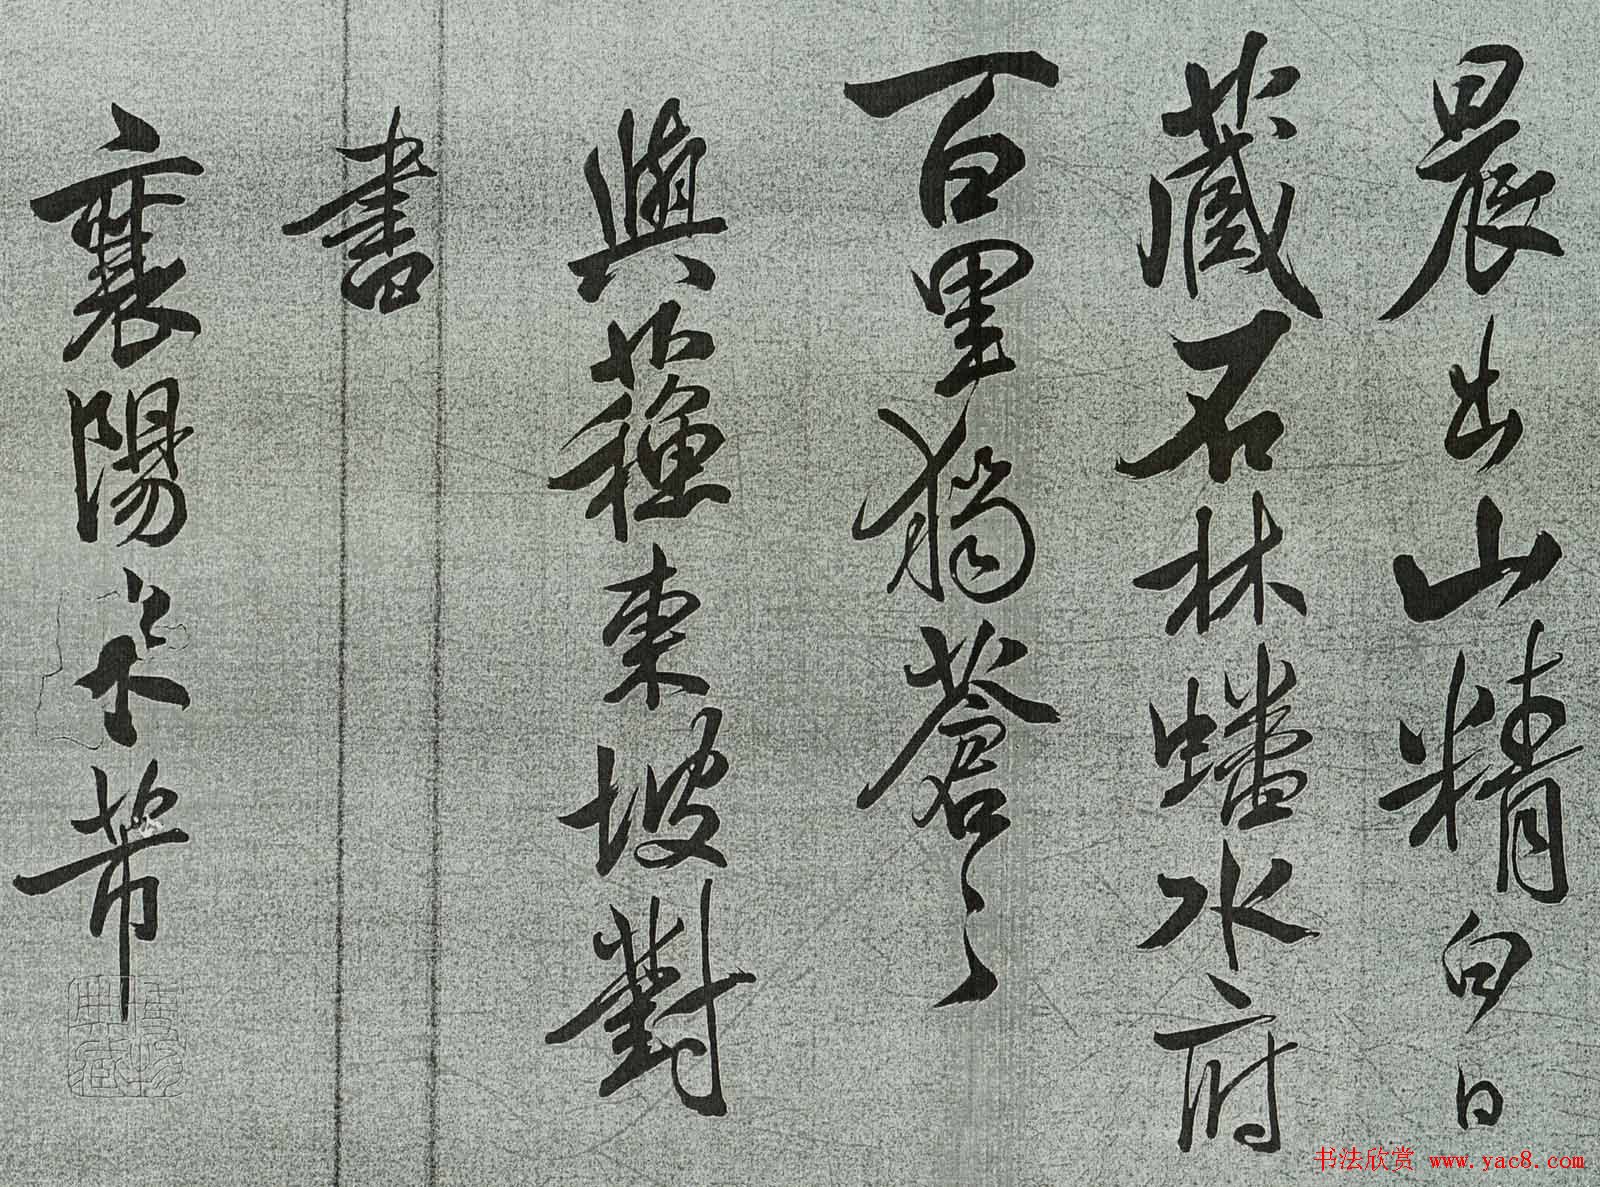 晨出山精白日
藏石林蟠水府
百里獨蒼〻
與蘓東坡對
書
襄陽米芾
书法欣赏 www.yac8.com